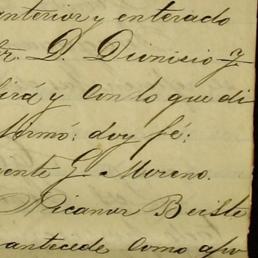 anterior y enterado
Sr. D. Dionisio J
birá y con lo que di
firmó: doy fé:
ente G. Moreno.
Nicanor Beiste
antecede como apo